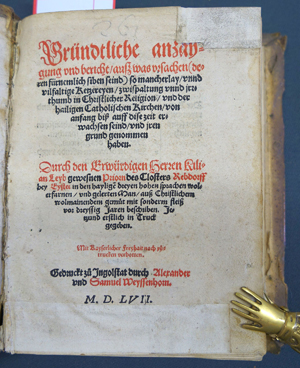 Gründtliche anzay-
gung vnd bericht/ auß was vrsachen/ (de-
ren fürnemlich siben seind) so mancherlay/ vnnd
vilfaltige Ketzereyen/ zwispaltung vnnd jrr-
thumb in Christlicher Religion/ vnd der
heiligen Catholischen Kirchen/ von
anfang biß auff dise zeit er-
wachsen seind/ vnd jren
grund genommen
haben.
Durch den Erwürdigen Herren Kili-
an Leyb gewesnen Priorn des Closters Rebdorff
bey Eystet in den haylige dreyen hohen sprachen wol-
erfarnen/ vnd gelerten Man/ auß Christlichem
wolmainendem gemüt mit sonderm fleiß
vor dreyssig Jaren beschriben. Je-
tzund erstlich in Truck
gegeben.
Mit Kayserlicher Freyhait nach zů
trucken verbotten.
Getruckt zů Ingolstat durch Alexander
vnd Samuel Weyssenhorn.
M. D. LVII.